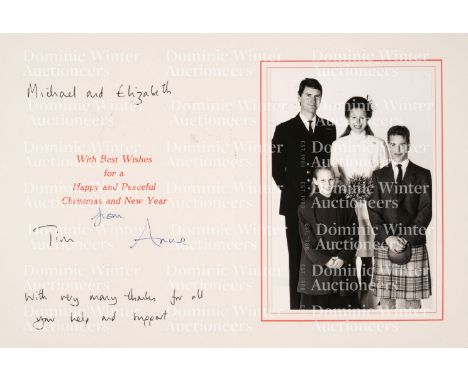 Michael and Elizabeth
With Best Wishes
for a
Happy and Peaceful
Christmas and New Year
from
Tim Anne
With very many thanks for all
your help and support.
Dominic Winter
Auctioneers
EST 1988